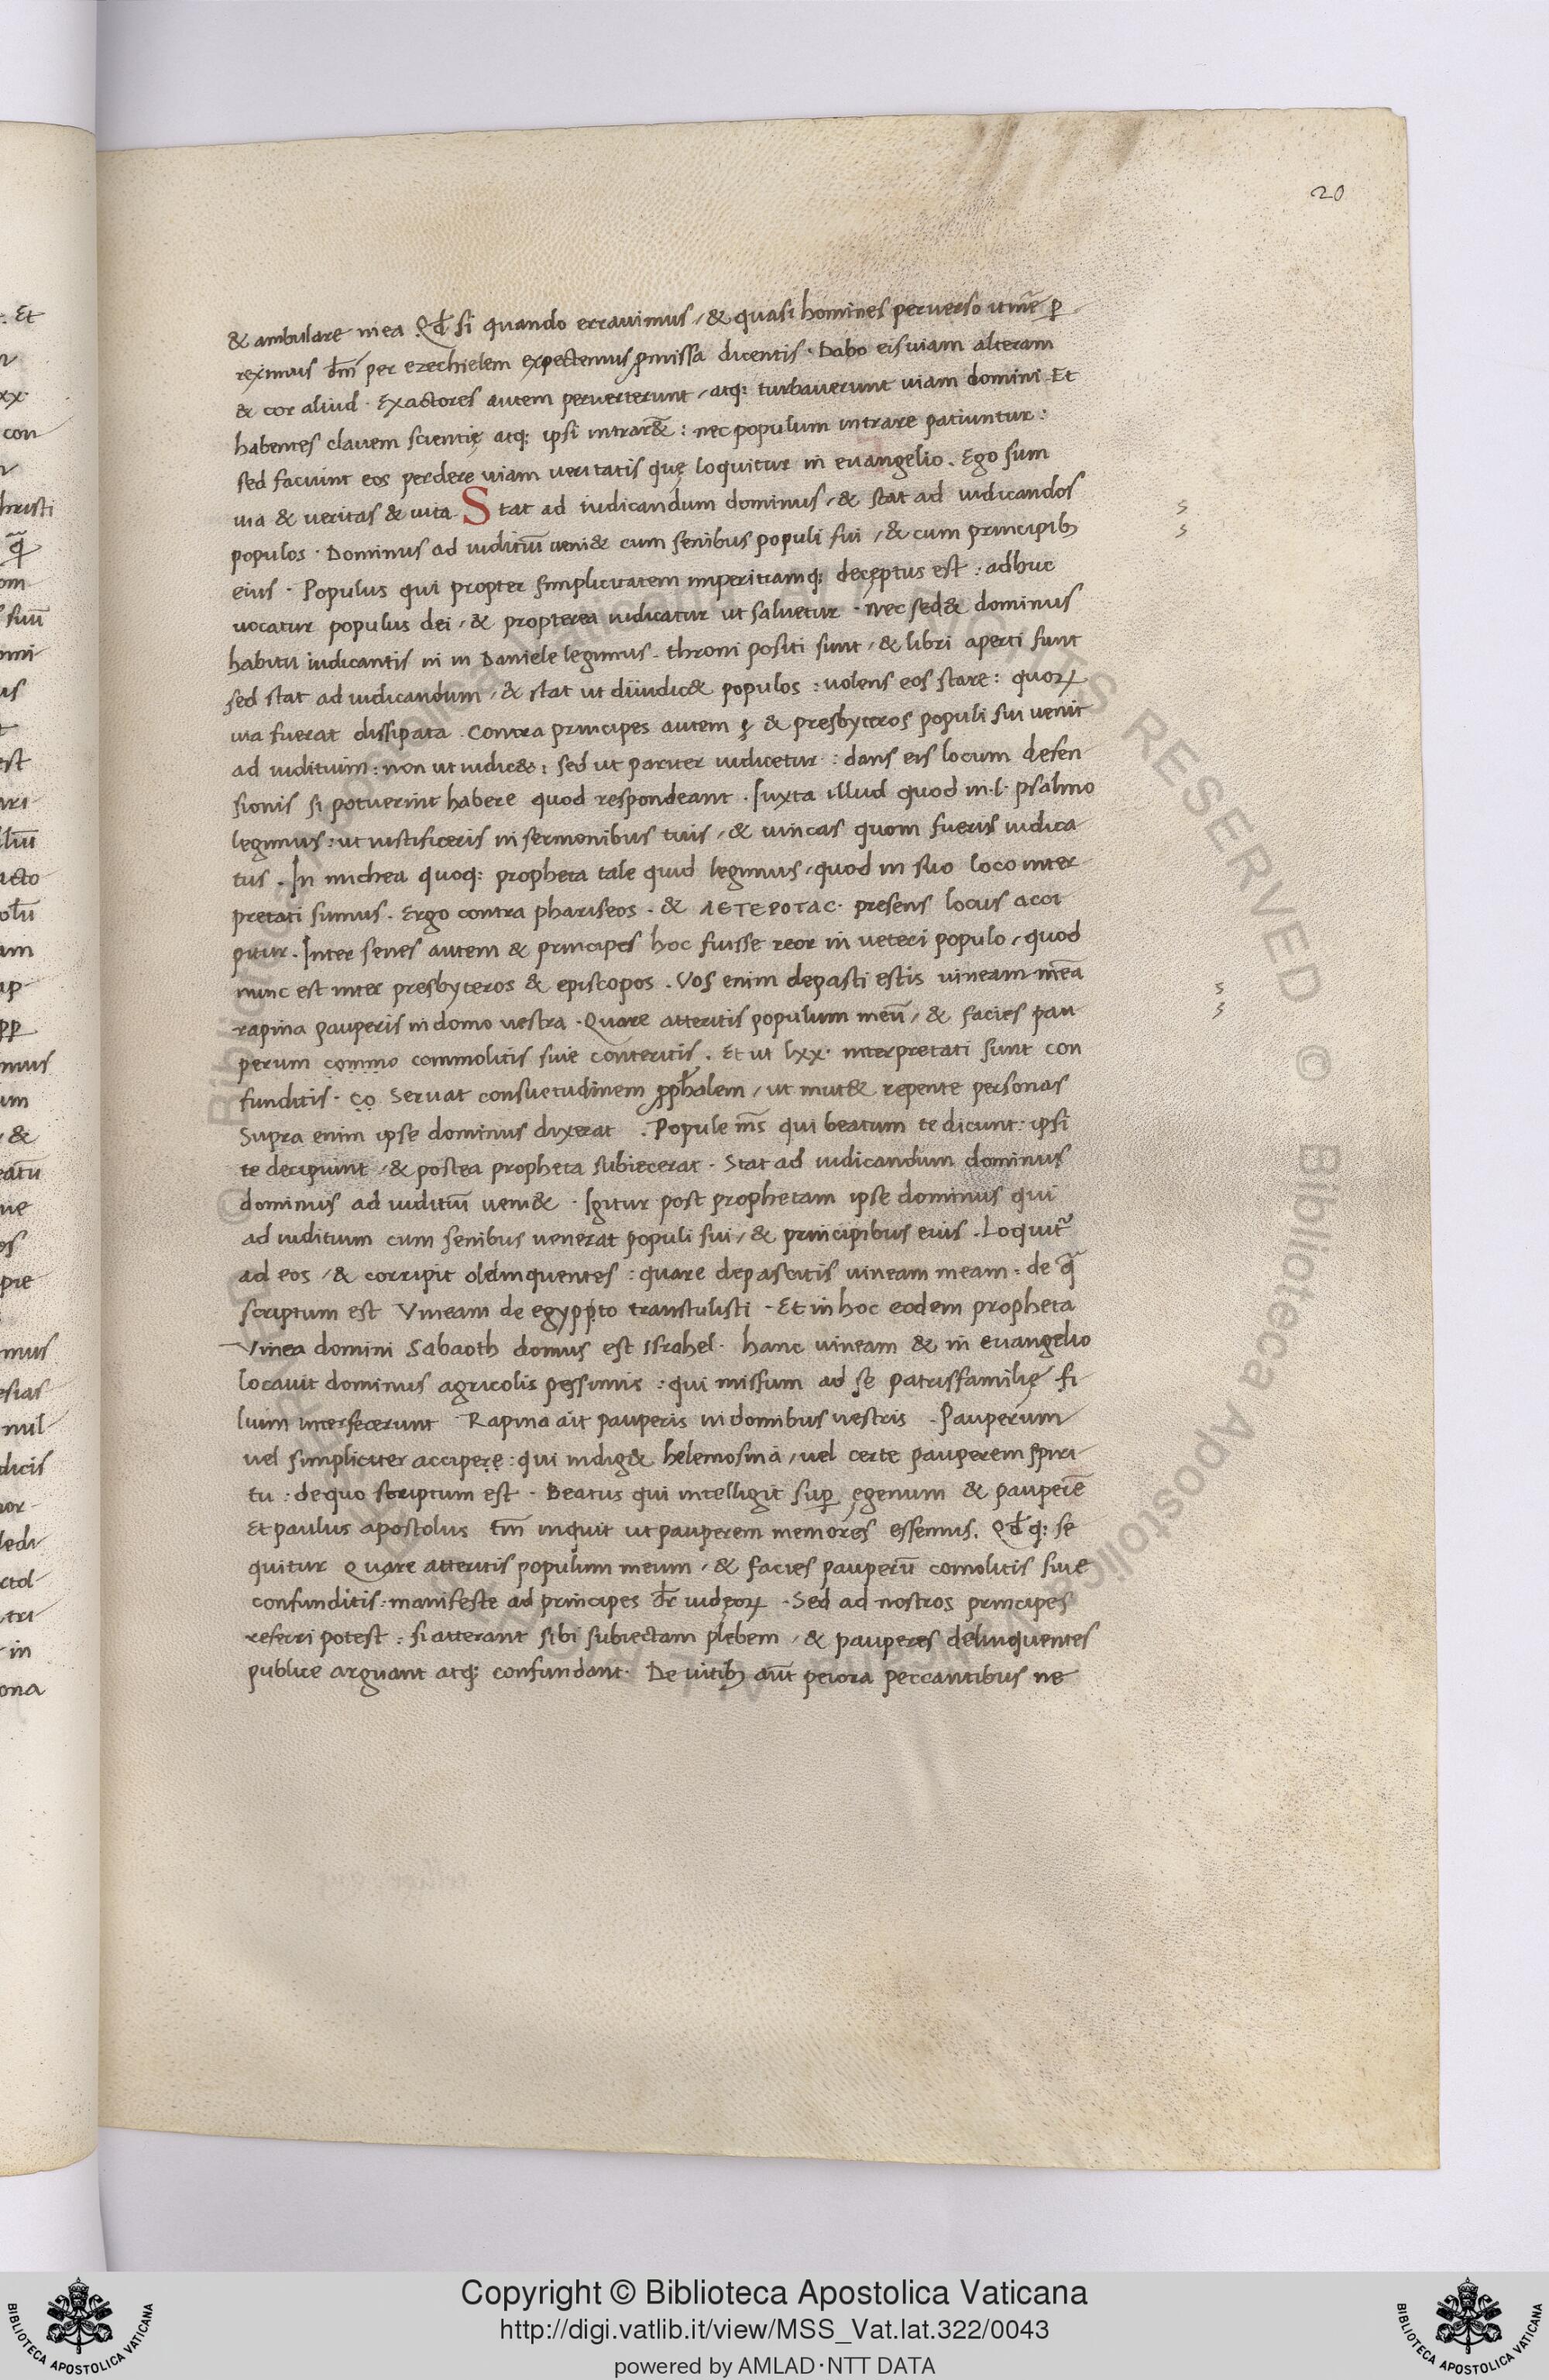 20
& ambulare in ea. Qđ si quando errauimus, & quasi homines peruerso itinē p̱
reximus dn̄m per ezechielem expectemus ꝓmissa dicentis. Dabo eis uiam alteram
& cor aliud. Exactores autem peruerterunt, atq; turbauerunt uiam domini. Et
habentes clauem scientię atq; ipsi intrar&: nec populum intrare patiuntur:
sed faciunt eos perdere uiam ueritatis quę loquitur in euangelio. Ego sum
uia & ueritas & uita. Stat ad iudicandum dominus, & stat ad iudicandos
populos. Dominus ad iuditiū ueni& cum senibus populi sui, & cum principib;
eius. Populus qui propter simplicitatem imperitiamq; deceptus est: adhuc
uocatur populus dei, & propterea iudicatur ut saluetur. nec sed& dominus
habitu iudicantis ni in Daniele legimus. throni positi sunt, & libri aperti sunt
sed stat ad iudicandum, & stat ut diiudic& populos: uolens eos stare: quoꝝ
uia fuerat dissipata. Contra principes autem & presbyteros populi sui uenit
ad iuditium: non ut iudic&: sed ut pariter iudicetur: dans eis locum defen
sionis si potuerint habere quod respondeant. Iuxta illud quod in .l. psalmo
legimus: ut iustificeris in sermonibus tuis, & uincas quom fueris iudica
tus. In michea quoq; propheta tale quid legimus, quod in suo loco inter
pretati sumus. Ergo contra phariseos. & ΛΕΤΕΡΟΤΑC. presens locus acci
pitur. Inter senes autem & principes hoc fuisse reor in ueteri populo, quod
nunc est inter presbyteros & episcopos. Vos enim depasti estis uineam meā
rapina pauperis in domo uestra. Quare atteritis populum meū, & facies pau
perum commo commolitis siue conteritis. Et ut lxx. interpretati sunt con
funditis. co Seruat consuetudinem ꝓph̄alem, ut mut& repente personas
Supra enim ipse dominus dixerat. Popule m̄s qui beatum te dicunt: ipsi
te decipiunt, & postea propheta subiecerat. Stat ad iudicandum dominus
dominus ad iuditiū ueni&. Igitur post prophetam ipse dominus qui
ad iuditium cum senibus uenerat populi sui, & principibus eius. Loquit᷑
ad eos, & corripit delinquentes: quare depascitis uineam meam: de q̄
scriptum est Vineam de egyppto transtulisti. Et in hoc eodem propheta
Vinea domini Sabaoth domus est Israhel. hanc uineam & in euangelio
locauit dominus agricolis pessimis: qui missum ad se patrisfamilię fi
lium interfecerunt Rapina ait pauperis in domibus uestris. Pauperum
uel simpliciter accipere: qui indig& helemosina, uel certe pauperem spiri
tu: de quo scriptum est. Beatus qui intelligit suꝑ egenum & pauperē
Et paulus apostolus tm̄ inquit ut pauperem memores essemus. Qđq; se
quitur Quare atteritis populum meum, & facies pauperū comolitis siue
confunditis: manifeste ad principes dr̄ iudeoꝝ. Sed ad nostros principes
referri potest: si atterant sibi subiectam plebem, & pauperes delinquentes
publice arguant atq; confundant. De uitib; aūt peiora peccantibus ne
Copyright © Biblioteca Apostolica Vaticana
http://digi.vatlib.it/view/MSS_Vat.lat.322/0043
powered by AMLAD·NTT DATA